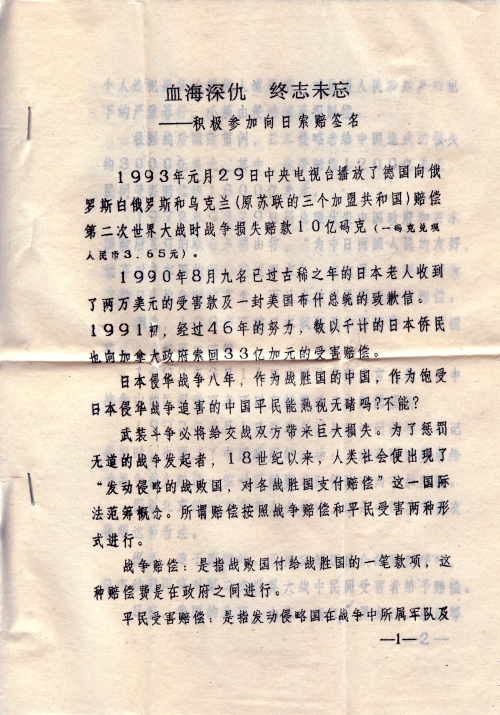 血海深仇　终志未忘
——积极参加向日索赔签名
1993年元月29日中央电视台播放了德国向俄
罗斯白俄罗斯和乌克兰(原苏联的三个加盟共和国)赔偿
第二次世界大战时战争损失赔款10亿码克(一码克兑现
人民币3.65元)。
1990年8月九名已过古稀之年的日本老人收到
了两万美元的受害款及一封美国布什总统的致歉信。
1991初，经过46年的努力，数以千计的日本侨民
也向加拿大政府索回33亿加元的受害赔偿。
日本侵华战争八年，作为战胜国的中国，作为饱受
日本侵华战争迫害的中国平民能熟视无睹吗?不能?
武装斗争必将给交战双方带来巨大损失。为了惩罚
无道的战争发起者，18世纪以来，人类社会便出现了
“发动侵略的战败国，对各战胜国支付赔偿”这一国际
法范筹概念。所谓赔偿按照战争赔偿和平民受害两种形
式进行。
战争赔偿：是指战败国付给战胜国的一笔款项，这
种赔偿费是在政府之间进行。
平民受害赔偿：是指发动侵略国在战争中所属军队及
—1—